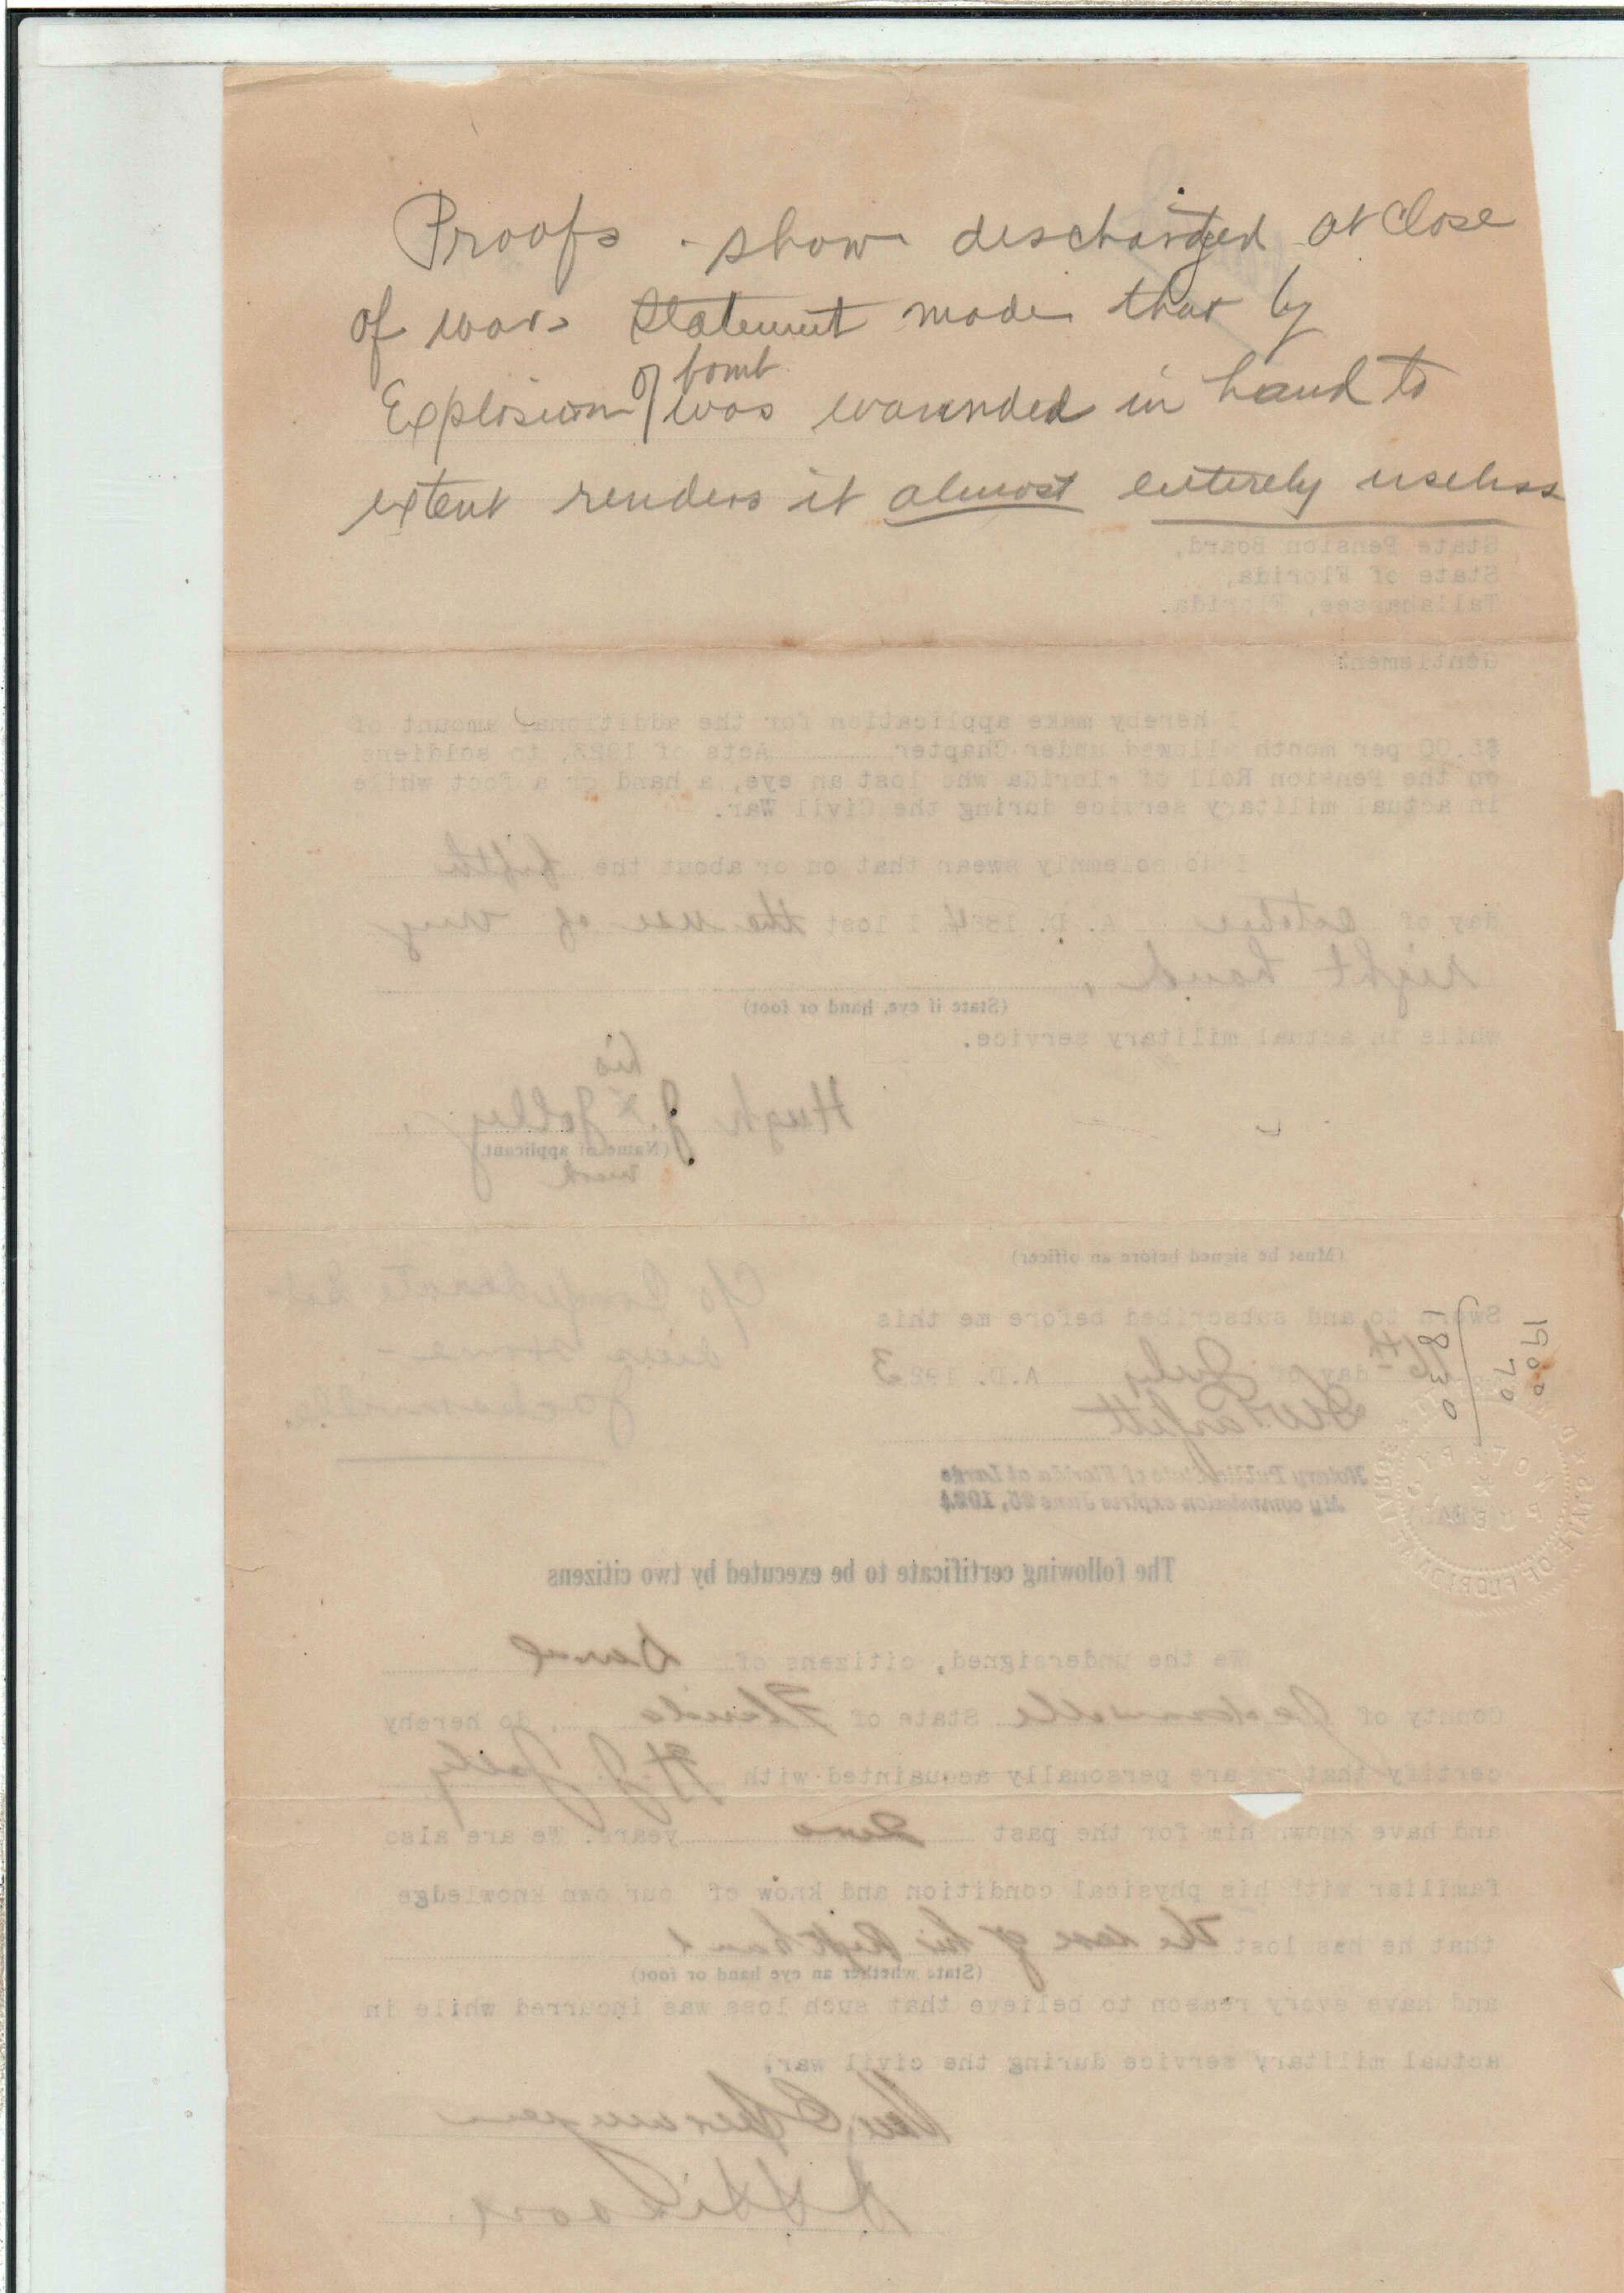 Proofs - show discharged at Close
of war. Statement made that by
Explosion of bomb was wounded in hand to
extent renders it almost entirely useless
State Pension Board,
State of Florida,
Tallahassee, Florida.
Gentlemen:
I hereby make application for the additional amount of
$5.00 per month allowed under Chapter Acts of 1923, to soldiers
on the Pension Roll of Florida who lost an eye, a hand or a foot while
in actual military service during the Civil War.
I do solemnly swear that on or about the fifth
day of October A. D. 1864 I lost the use of my
right hand,
(State if eye, hand or foot)
while in actual military service.
his
Hugh J. x Jolley
(Name of applicant)
mark
(Must be signed before an officer)
C/o Confederate Sol
diers Home -
Jacksonville
Sworn to and subscribed before me this
16th day of July A.D. 1923
Notary Public State of Florida at Large
My commission expires June 25, 1924
1900
70
1830
The following certificate to be executed by two citizens
We the undersigned, citizens of Duval
County of Jacksonville State of Florida, do hereby
certify that we are personally acquainted with H. J. Jolly
and have known him for the past years. We are also
familiar with his physical condition and know of our own knowledge
that he has lost the use of his Right hand
(State whether an eye hand or foot)
and have every reason to believe that such loss was incurred while in
actual military service during the civil war.